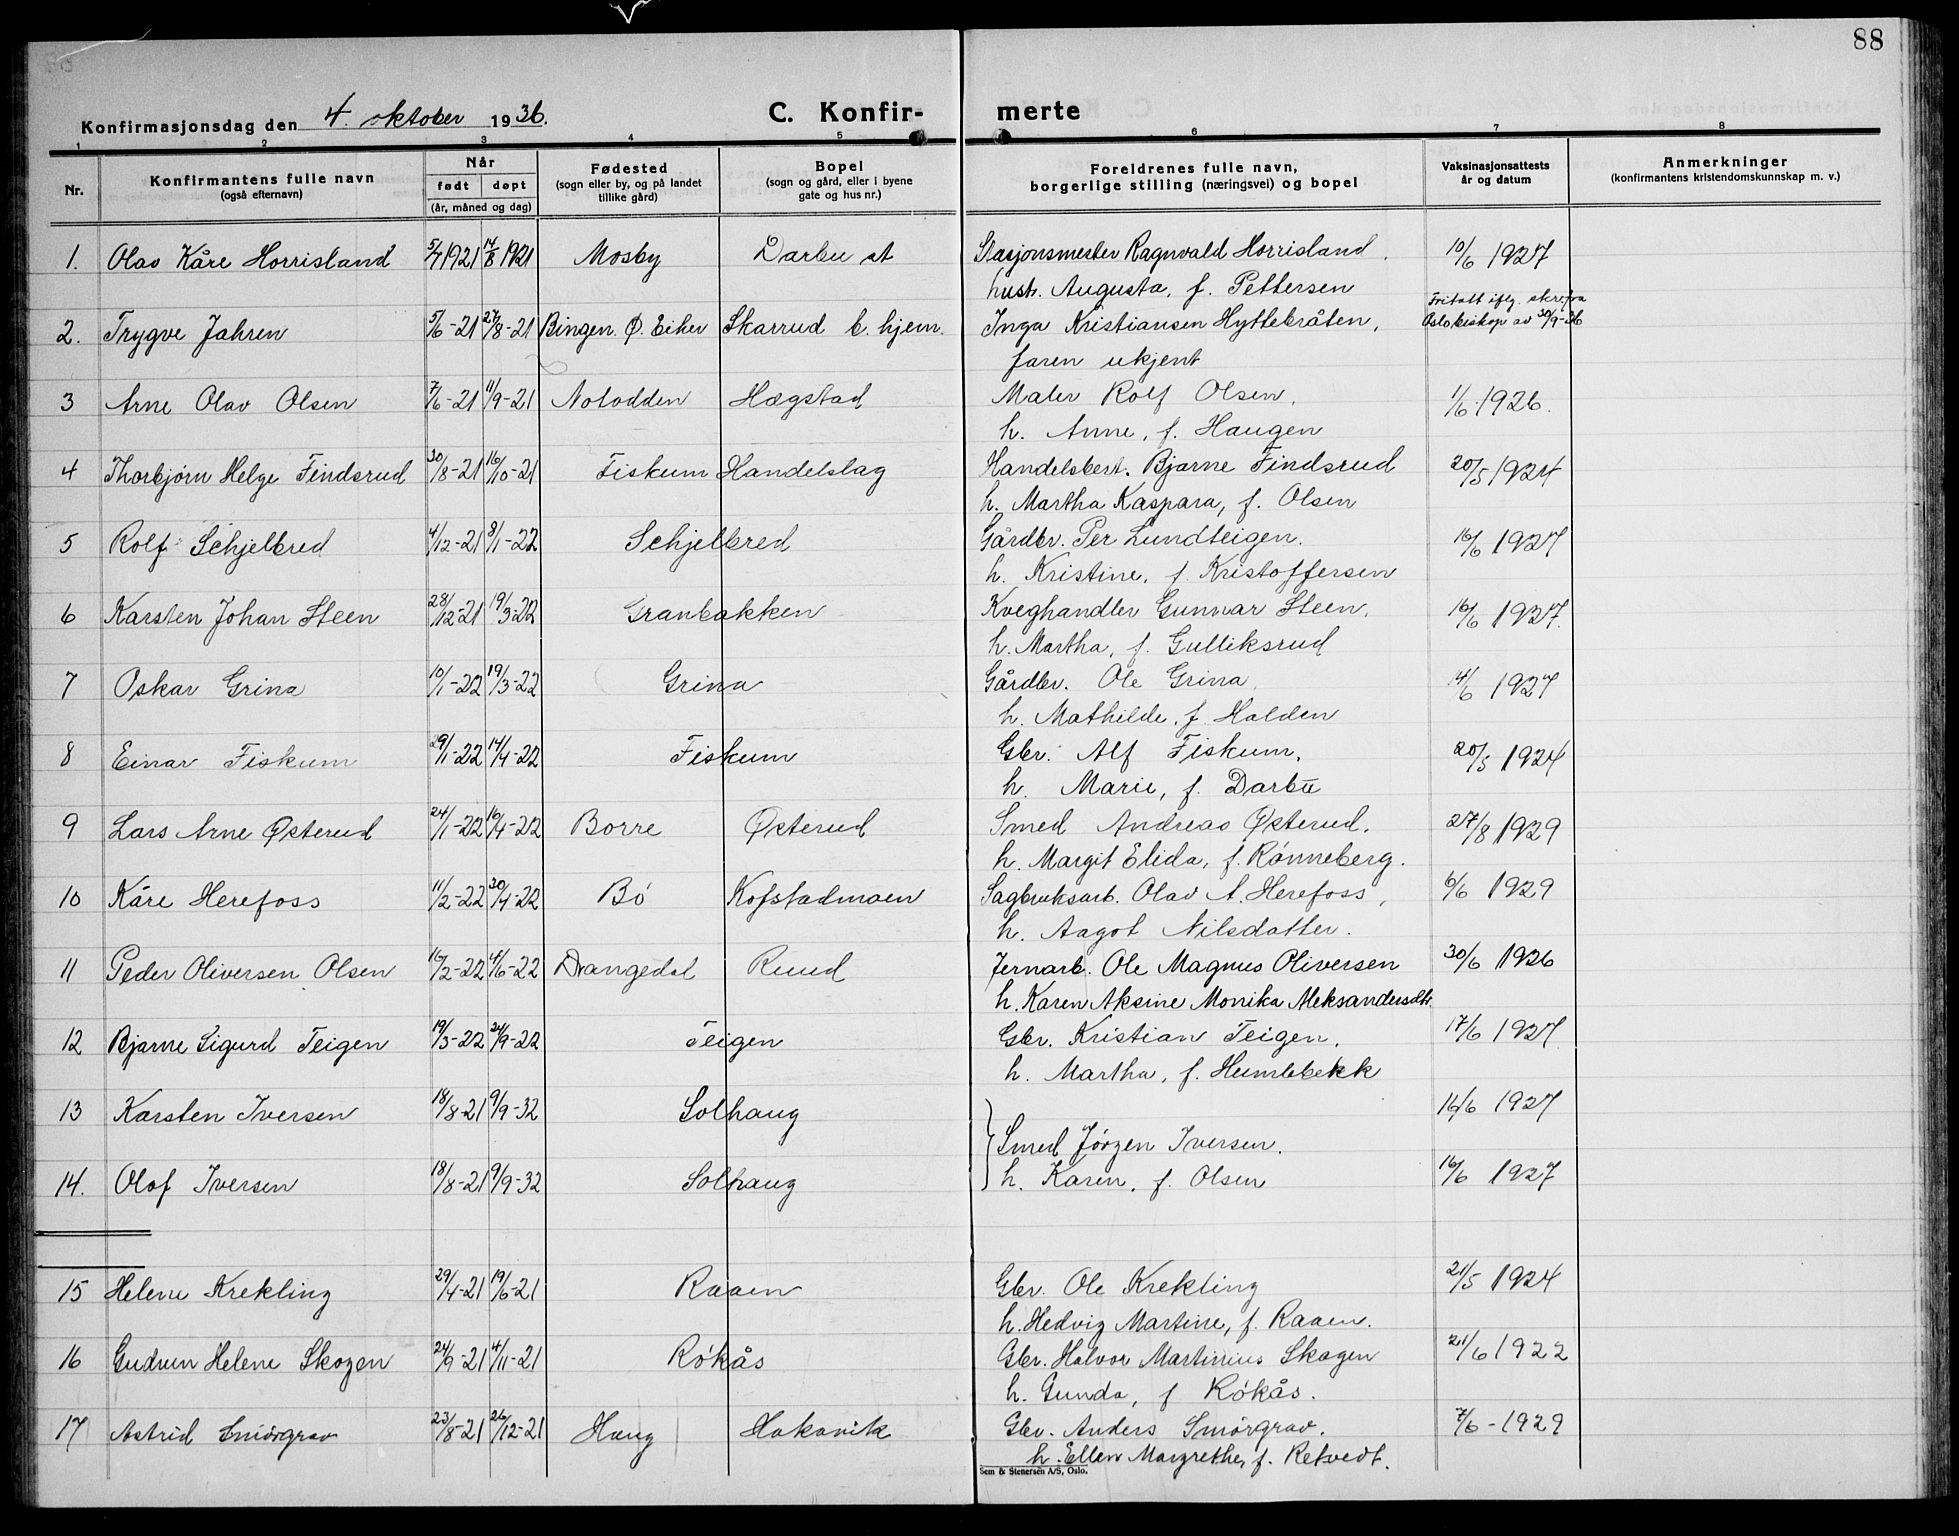 88
Konfirmasjonsdag den 4. oktober 1936.
C. Konfir-
merte
1 2 3 4 5 6 7 8
Nr.
Konfirmantens fulle navn
(også efternavn)
Når
født døpt
(år, måned og dag)
Fødested
(sogn eller by, og på landet
tillike gård)
Bopel
(sogn og gård, eller i byene
gate og hus nr.)
Foreldrenes fulle navn,
borgerlige stilling (næringsvei) og bopel
Vaksinasjonsattests
år og datum
Anmerkninger
(konfirmantens kristendomskunnskap m. v.)
1. Olav Kåre Horrisland 5/4 1921 14/8 1921 Mosby Darbu st Stasjonsmester Ragnvald Horrisland, 10/6 1927
hustr. Augusta, f. Pettersen
2. Trygve Jahren 5/6-21 27/8-21 Bingen. Ø. Eiker Skarrud b. hjem. Inga Kristiansen Hyttebråten, Fritatt iflg. skr. fra
faren ukjent Oslo biskop av 30/9-36
3 Arne Olav Olsen 7/6-21 11/9-21 Notodden Hægstad Maler Rolf Olsen, 1/6 1926.
h. Anne, f. Haugen
4 Thorbjørn Helge Findsrud 30/8-21 16/10-21 Fiskum Handelslag Handelsbest. Bjarne Findsrud 20/5 1924
h. Martha Kaspara, f. Olsen
5 Rolf Schjelbred 4/12-21 8/1-22 Schjelbred Gårdbr. Per Lundteigen. 16/6 1927
h. Kristine, f. Kristoffersen
6 Karsten Johan Steen 28/12-21 19/3-22 Granbakken Kveghandler Gunnar Steen, 16/6 1927.
h. Martha, f. Gulliksrud
7 Oskar Grina 10/1-22 19/3-22 Grina Gårdbr. Ole Grina, 14/6 1927
h. Mathilde, f. Halden
8 Einar Fiskum 29/1-22 17/4-22 Fiskum Gbr. Alf Fiskum, 20/5 1924
h. Marie, f. Darbu
9 Lars Arne Østerud 24/1-22 16/4-22 Borre Østerud Smed Andreas Østerud, 27/8 1929
h. Margit Elida, f. Rønneberg.
10 Kåre Herefoss 11/2-22 30/4-22 Bø Kofstadmoen Sagbruksarb. Olav A. Herefoss, 6/6 1929
h. Aagot Nilsdatter.
11 Peder Oliversen Olsen 16/2-22 4/6-22 Drangedal Ruud Jernarb. Ole Magnus Oliversen 30/6 1926
h. Karen Aksine Monika Aleksandersdtr.
12 Bjarne Sigurd Teigen 19/3-22 24/9-22 Teigen Gbr. Kristian Teigen, 17/6 1927
h. Martha, f. Humlebekk
13 Karsten Iversen 18/8-21 9/9-32 Solhaug 16/6 1927
Smed Jørgen Iversen.
14. Olaf Iversen 18/8-21 9/9-32 Solhaug h. Karen, f. Olsen 16/6 1927
15 Helene Krekling 29/4-21 19/6-21 Raaen Gbr. Ole Krekling 21/5 1924
h. Hedvig Martine, f. Raaen.
16 Gudrun Helene Skagen 24/9-21 4/11-21 Røkås Gbr. Halvor Martinius Skagen 21/6 1922
h. Gunda, f Røkås.
17 Astrid Smørgrav 23/8-21 26/12-21 Haug Hakavik Gbr. Anders Smørgrav. 7/6-1929
h. Ellen Margrethe, f. Retvedt.
Sem & Stenersen A/S, Oslo.